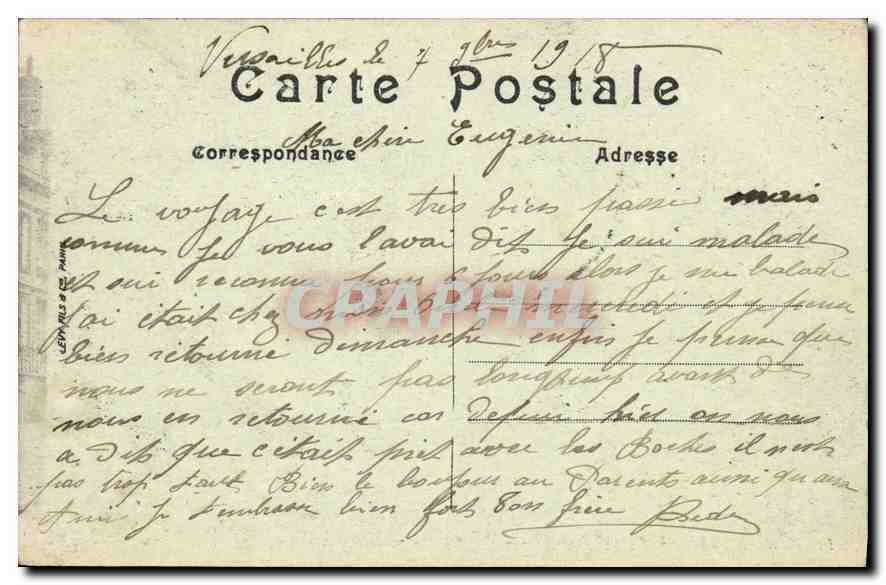 Versailles le 7 9bres 1918
Carte Postale
Ma chère Eugenie
Correspondance
Adresse
Le voyage c'est très bien passé mais
comme je vous l'avai dit je sui malade
et sui reconnu pour 6 jours alors je me balade
j'ai était chez mon et je pense
bien retourné dimanche enfin je pense que
nous ne seront pas longtemp avant de
nous en retourné car depui hier on nous
a dit que c'était piet avec les Boches il n'est
pas trop tard Bien le bonjour au Parents ainsi qu'aux
Ami je t'embrasse bien fort Ton frère
LEVY FILS & Cie PARIS
CPAPHIL